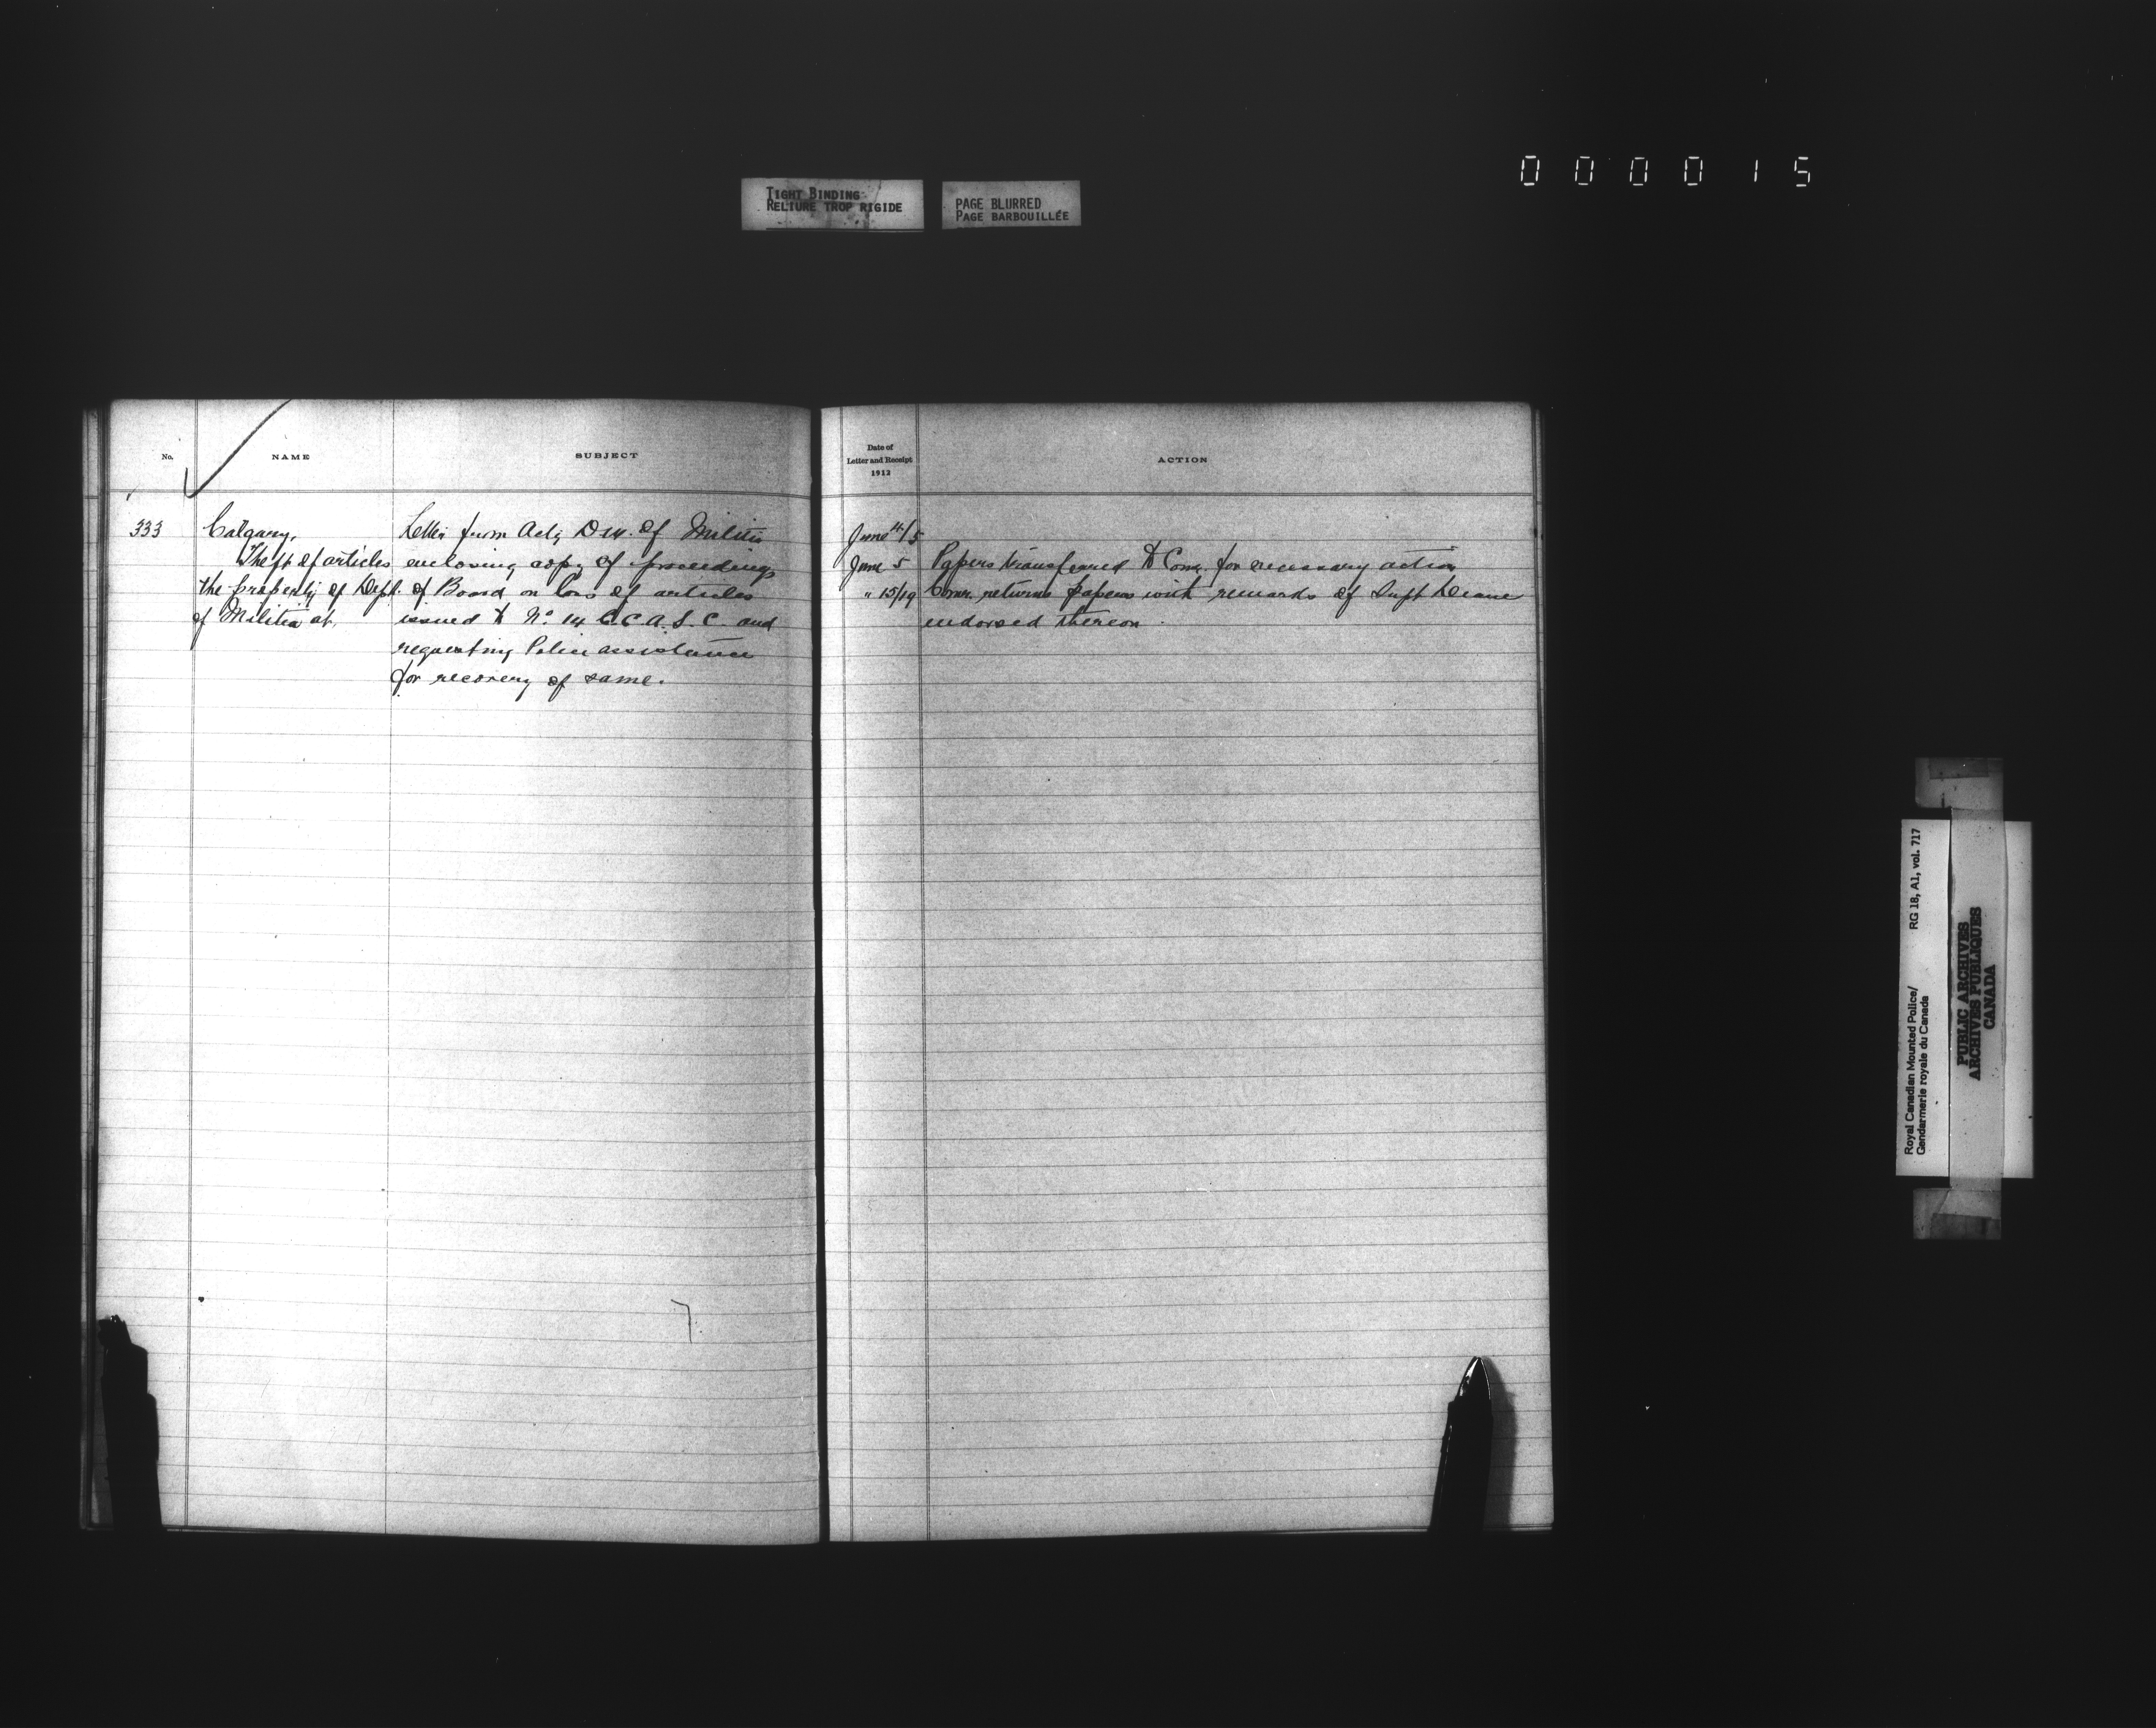 000015
TIGHT BINDING
RELIURE TROP RIGIDE
PAGE BLURRED
PAGE BARBOUILLÉE
No.
NAME
SUBJECT
333
Calgary,
Theft of articles
the property of Dept.
of Militia at.
Letter from Actg D.M. of Militia
enclosing copy of proceedings
of Board on loss of articles
issued to No. 14 C.C.A.S.C. and
requesting Police assistance
for recovery of same.
Date of
Letter and Receipt
1912
ACTION
June 4/5
June 5 Papers transferred to Comr. for necessary action
" 15/19 Comr. returns papers with remarks of Supt Deane
endorsed thereon.
Royal Canadian Mounted Police/
Gendarmerie royale du Canada
RG 18, A1, vol. 717
PUBLIC ARCHIVES
ARCHIVES PUBLIQUES
CANADA